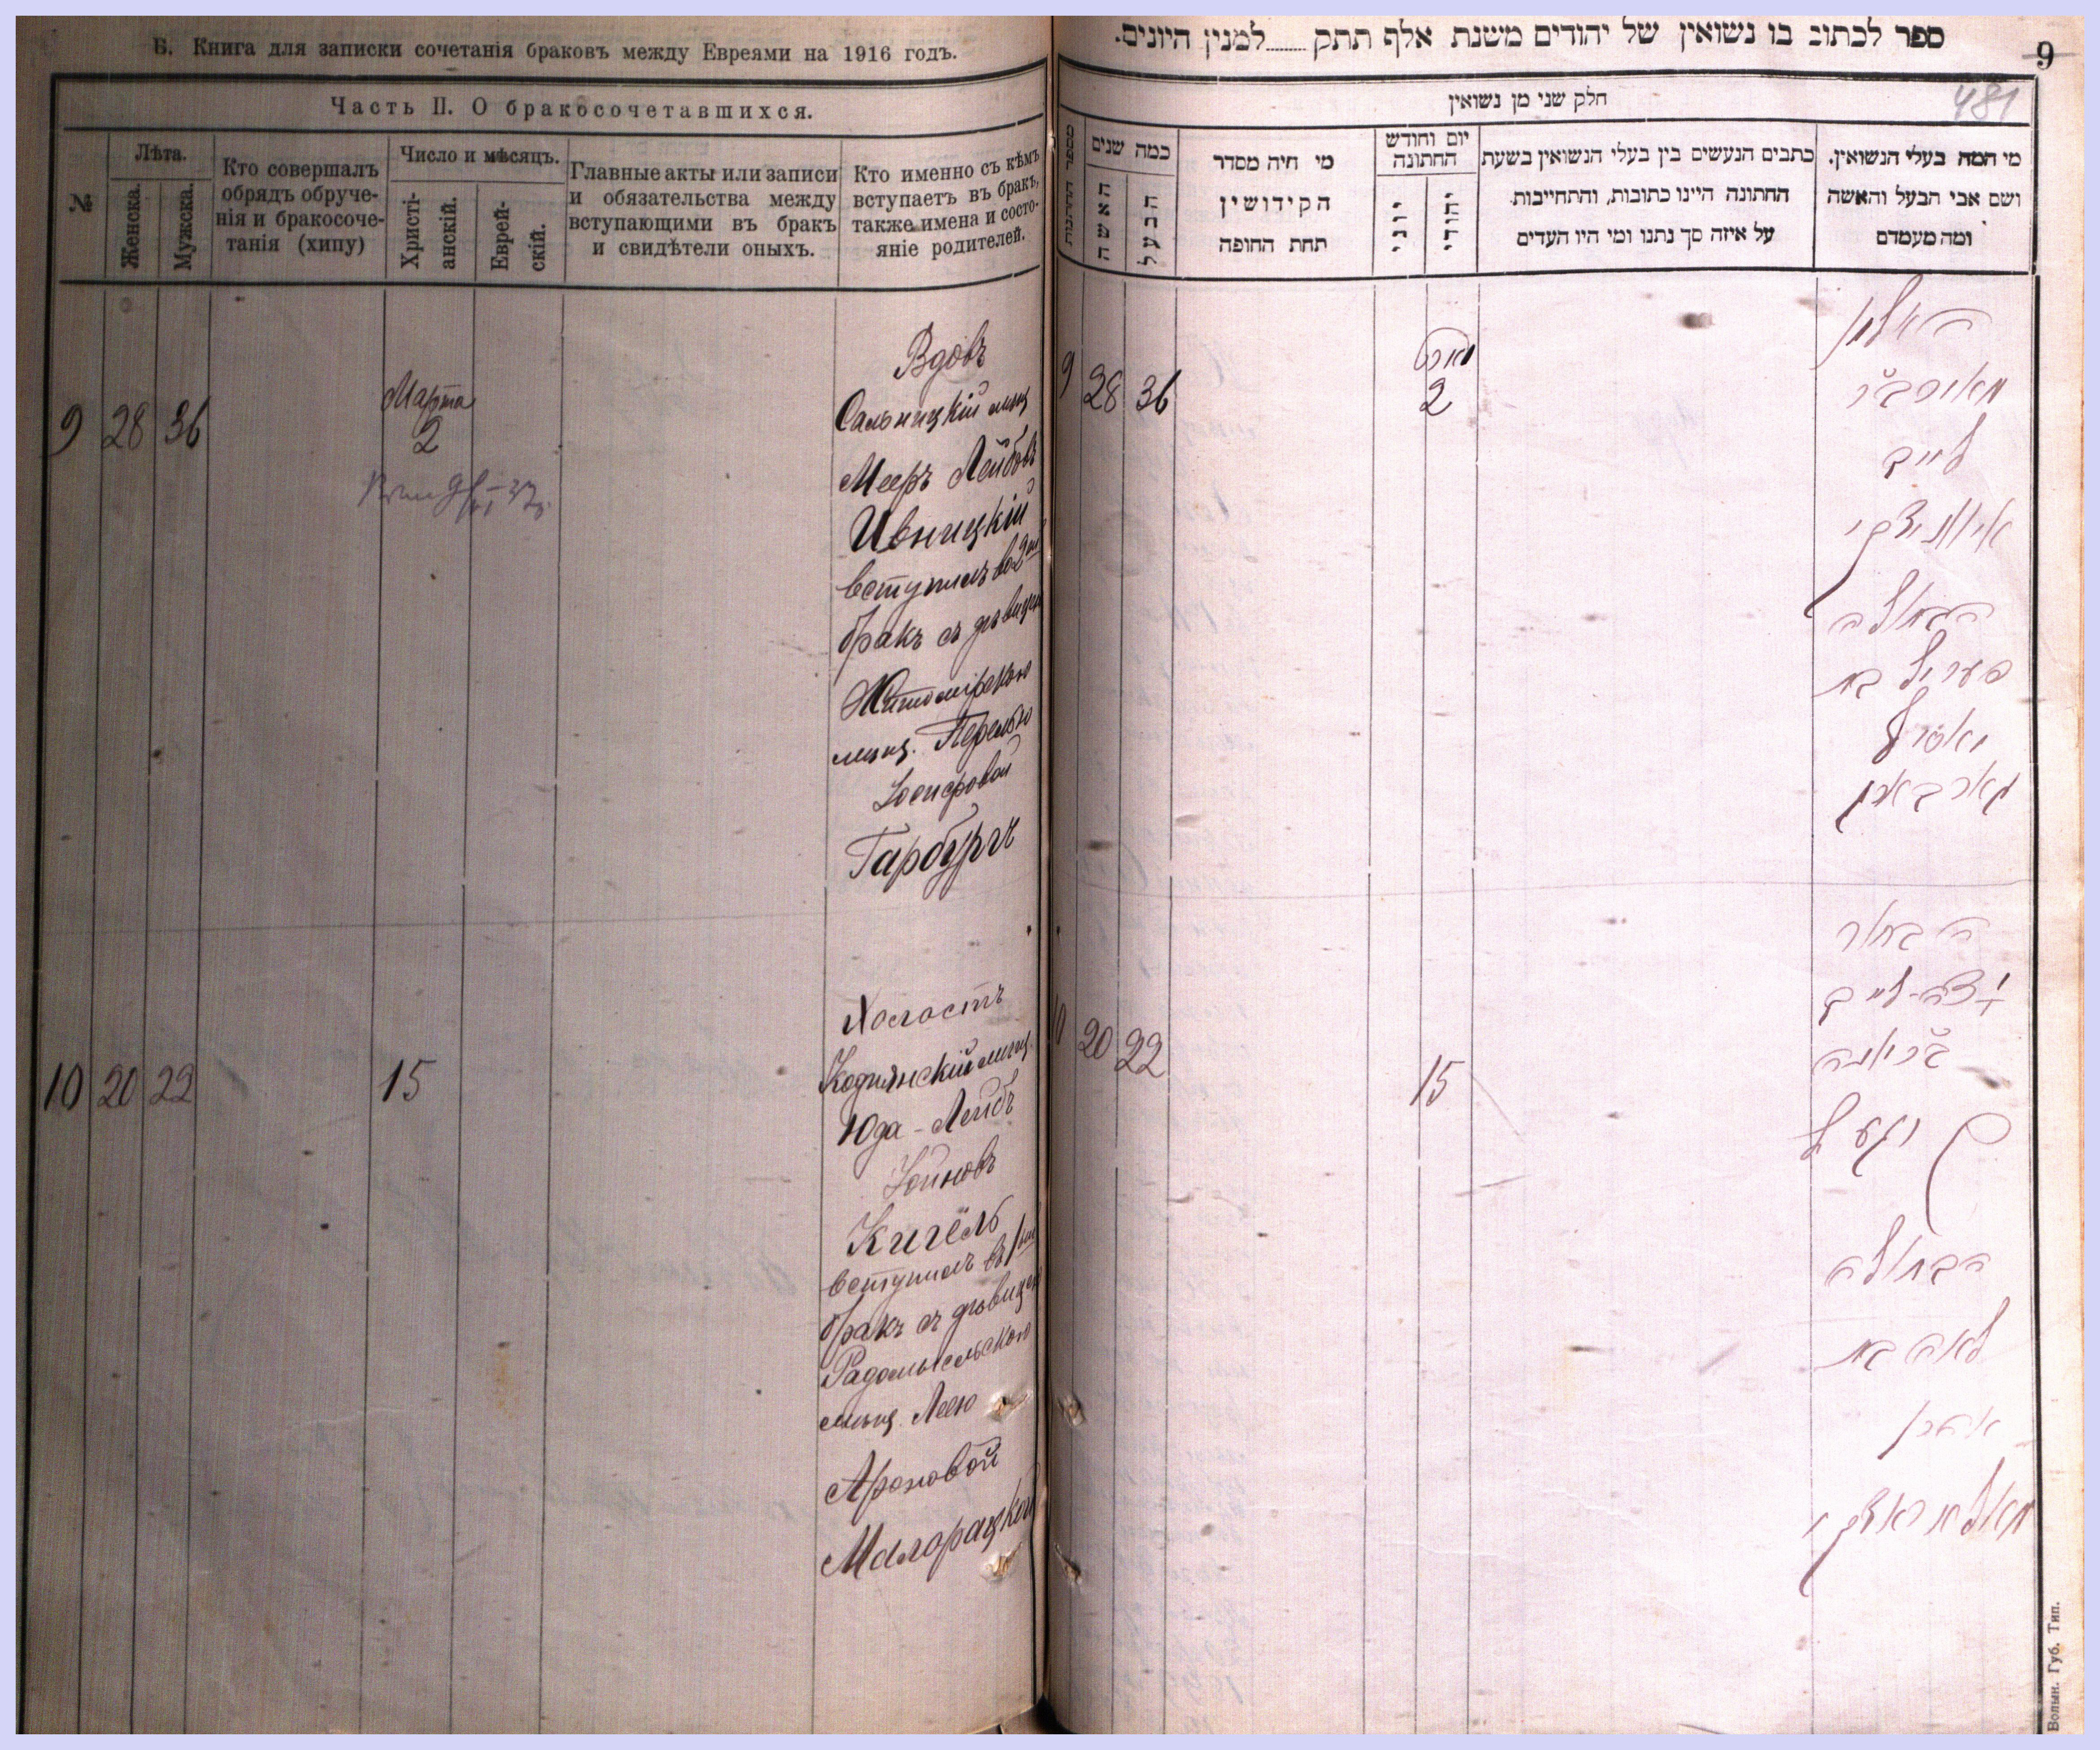 Б. Книга для записки сочетанія браковъ между Евреями на 1916 годъ.
Часть II. О бракосочетавшихся.
№
Лѣта.
Женска.
Мужска.
Кто совершалъ
обрядъ обруче-
нія и бракосоче-
танія (хипу)
Число и мѣсяцъ.
Христі-
анскій.
Еврей-
скій.
Главные акты или записи
и обязательства между
вступающими въ бракъ
и свидѣтели оныхъ.
Кто именно съ кѣмъ
вступаетъ въ бракъ,
также имена и состо-
яніе родителей.
9 28 36
Марта
2
Вдовъ
Сальницкій мѣщ
Мееръ Лейбовъ
Ивницкій
вступилъ во 2ый
бракъ съ дѣвицею
Житомірскою
мѣщ. Перелью
Іосифовой
Гарбургъ
10 20 22
15
Холостъ
Коднянскій мѣщ.
Юда-Лейбъ
Хоиновъ
Кигель
вступилъ въ 1ый
бракъ съ дѣвицею
Радомысльскою
мѣщ. Леею
Ароновой
Малорацкой
ספר לכתוב בו נשואין של יהודים משנת אלף תתק........למנין היונים.
9
481
חלק שני מן נשואין
מי המה בעלי הנשואין.
ושם אבי הבעל והאשה
ומה מעמדם
כתבים הנעשים בין בעלי הנשואין בשעת
החתונה היינו כתובות, והתחייבות
על איזה סך נתנו ומי היו העדים
יום וחודש
החתונה
יהודי
יוני
מי היה מסדר
הקידושין
תחת החופה
כמה שנים
הבעל
האשה
מספר החתונות
9 28 36
מארט
2
האלמן
מאיר ב״ר
לייב
איוניצקי
הבתולה
פעריל בת
יאסף
גארבארג
10 20 22
15
הבחור
לייב
קיגעל
הבתולה
לאה בת
אהרן
מאלאראצקי
Волын. Губ. Тип.